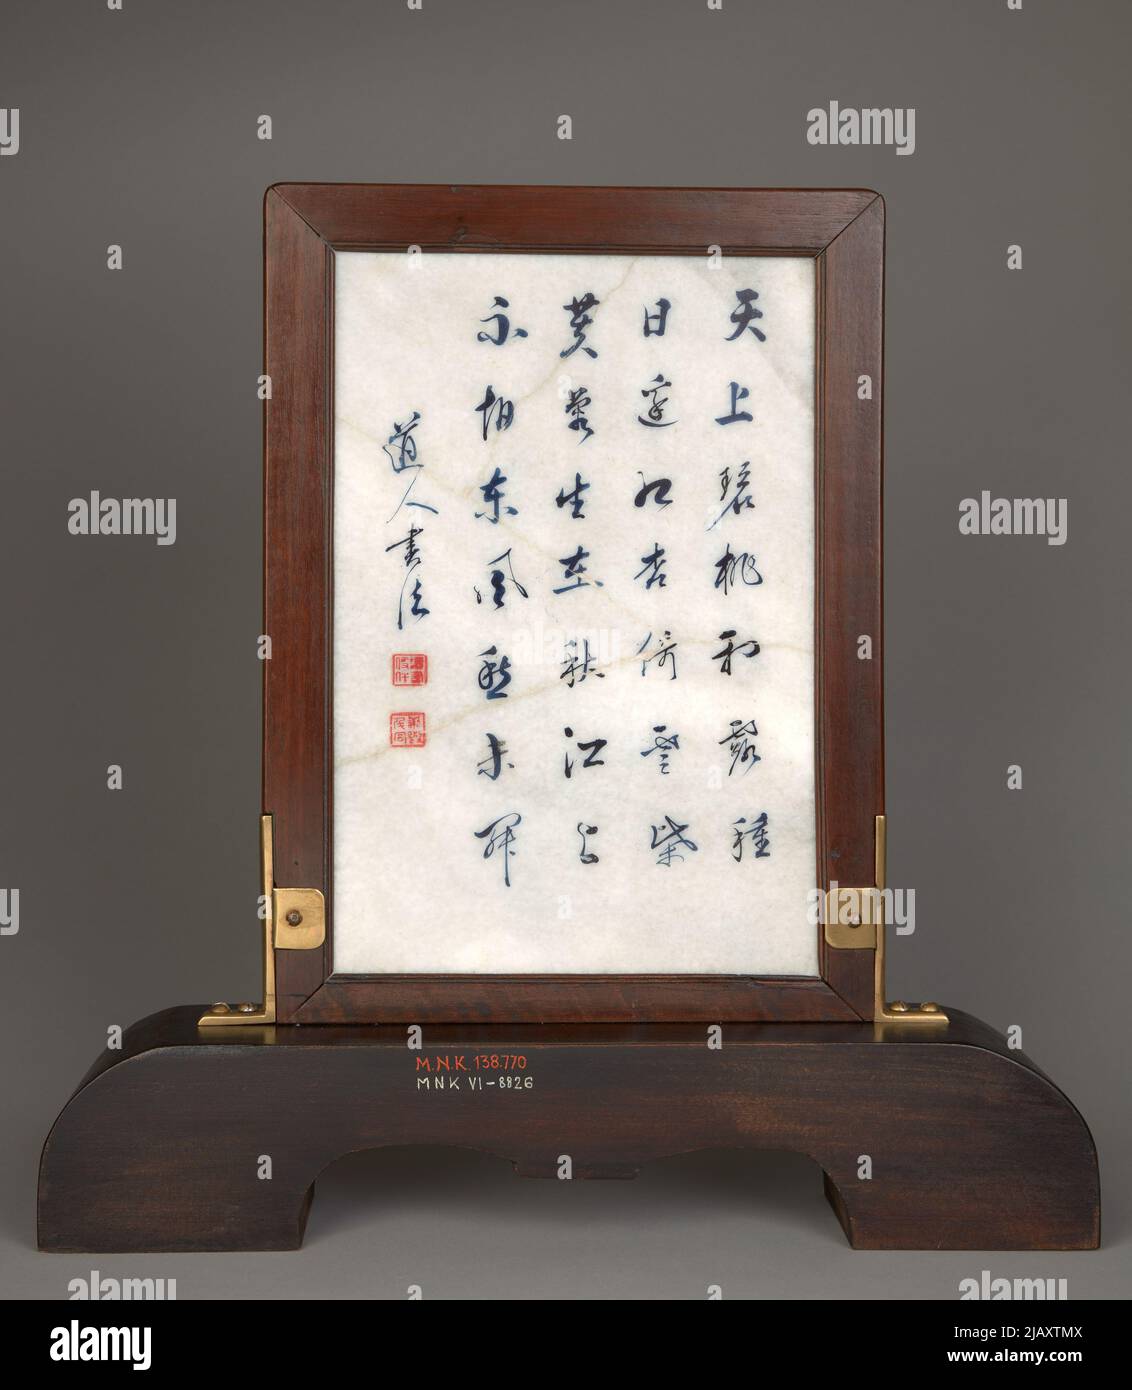 天上碧桃和露種
日邊紅杏倚雲栽
芙蓉生在秋江上
不怕東風怨未開
道人書法
M.N.K. 138.770
MNK VI-8826
alamy
Image ID: 2JAXTMX
www.alamy.com